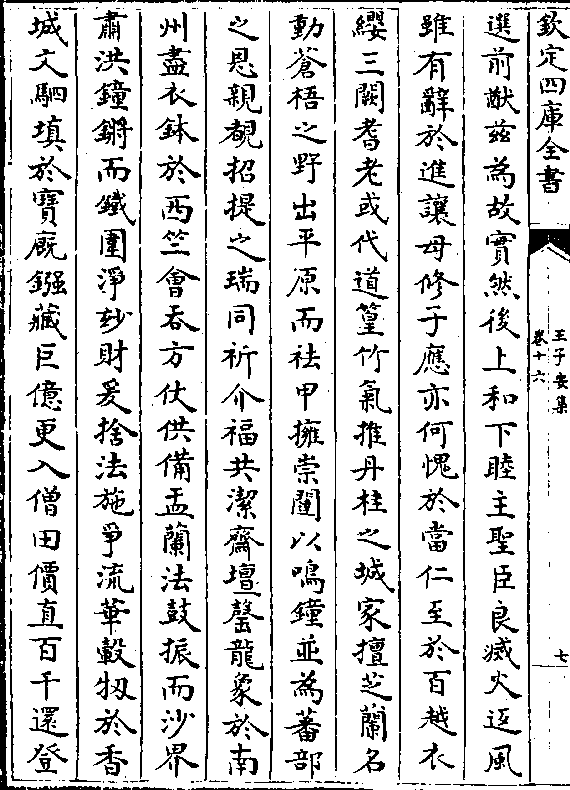 欽定四庫全書
王子安集
卷十六
七
選前猷茲為故實然後上和下睦主聖臣良滅火返風
雖有辭於進讓母修子應亦何愧於當仁至於百越衣
纓三闕耆老或代道篁竹氣推丹桂之城家擅芝蘭名
動蒼梧之野出平原而祛甲擁崇闉以鳴鐘並為蕃部
之恩親覩招提之瑞同祈介福共潔齋壇罄龍象於南
州盡衣鉢於西竺會吞方仗供備盂蘭法鼓振而沙界
肅洪鐘鏘而鐵圍淨玅財爰捨法施爭流華轂牣於香
城文駟填於寶廐鏹藏巨億更入僧田價直百千還登